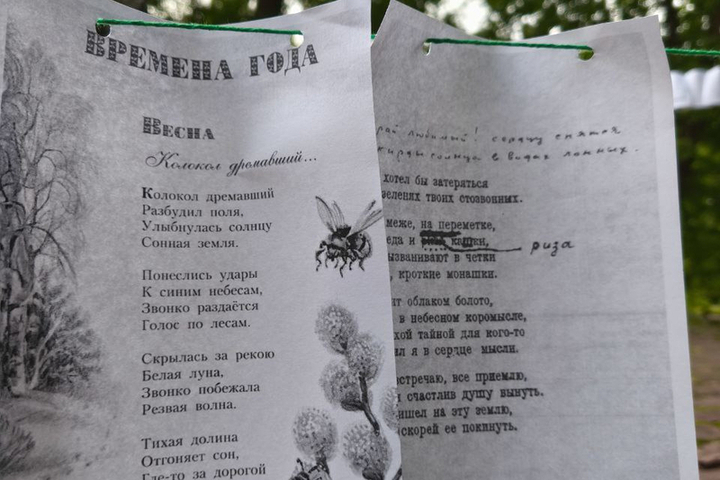 ВРЕМЕНА ГОДА
ВЕСНА
Колокол дремавший...
Колокол дремавший
Разбудил поля,
Улыбнулась солнцу
Сонная земля.
Понеслись удары
К синим небесам,
Звонко раздаётся
Голос по лесам.
Скрылась за рекою
Белая луна,
Звонко побежала
Резвая волна.
Тихая долина
Отгоняет сон,
Где-то за дорогой
рай любимый! сердцу снятся
солнца в водах лонных.
хотел бы затеряться
зеленях твоих стозвонных.
меже, на переметке,
еда и кашки, риза
вызванивают в четки
кроткие монашки.
ит облаком болото,
в небесном коромысле,
хой тайной для кого-то
ил я в сердце мысли.
встречаю, все приемлю,
счастлив душу вынуть.
ишел на эту землю,
скорей ее покинуть.